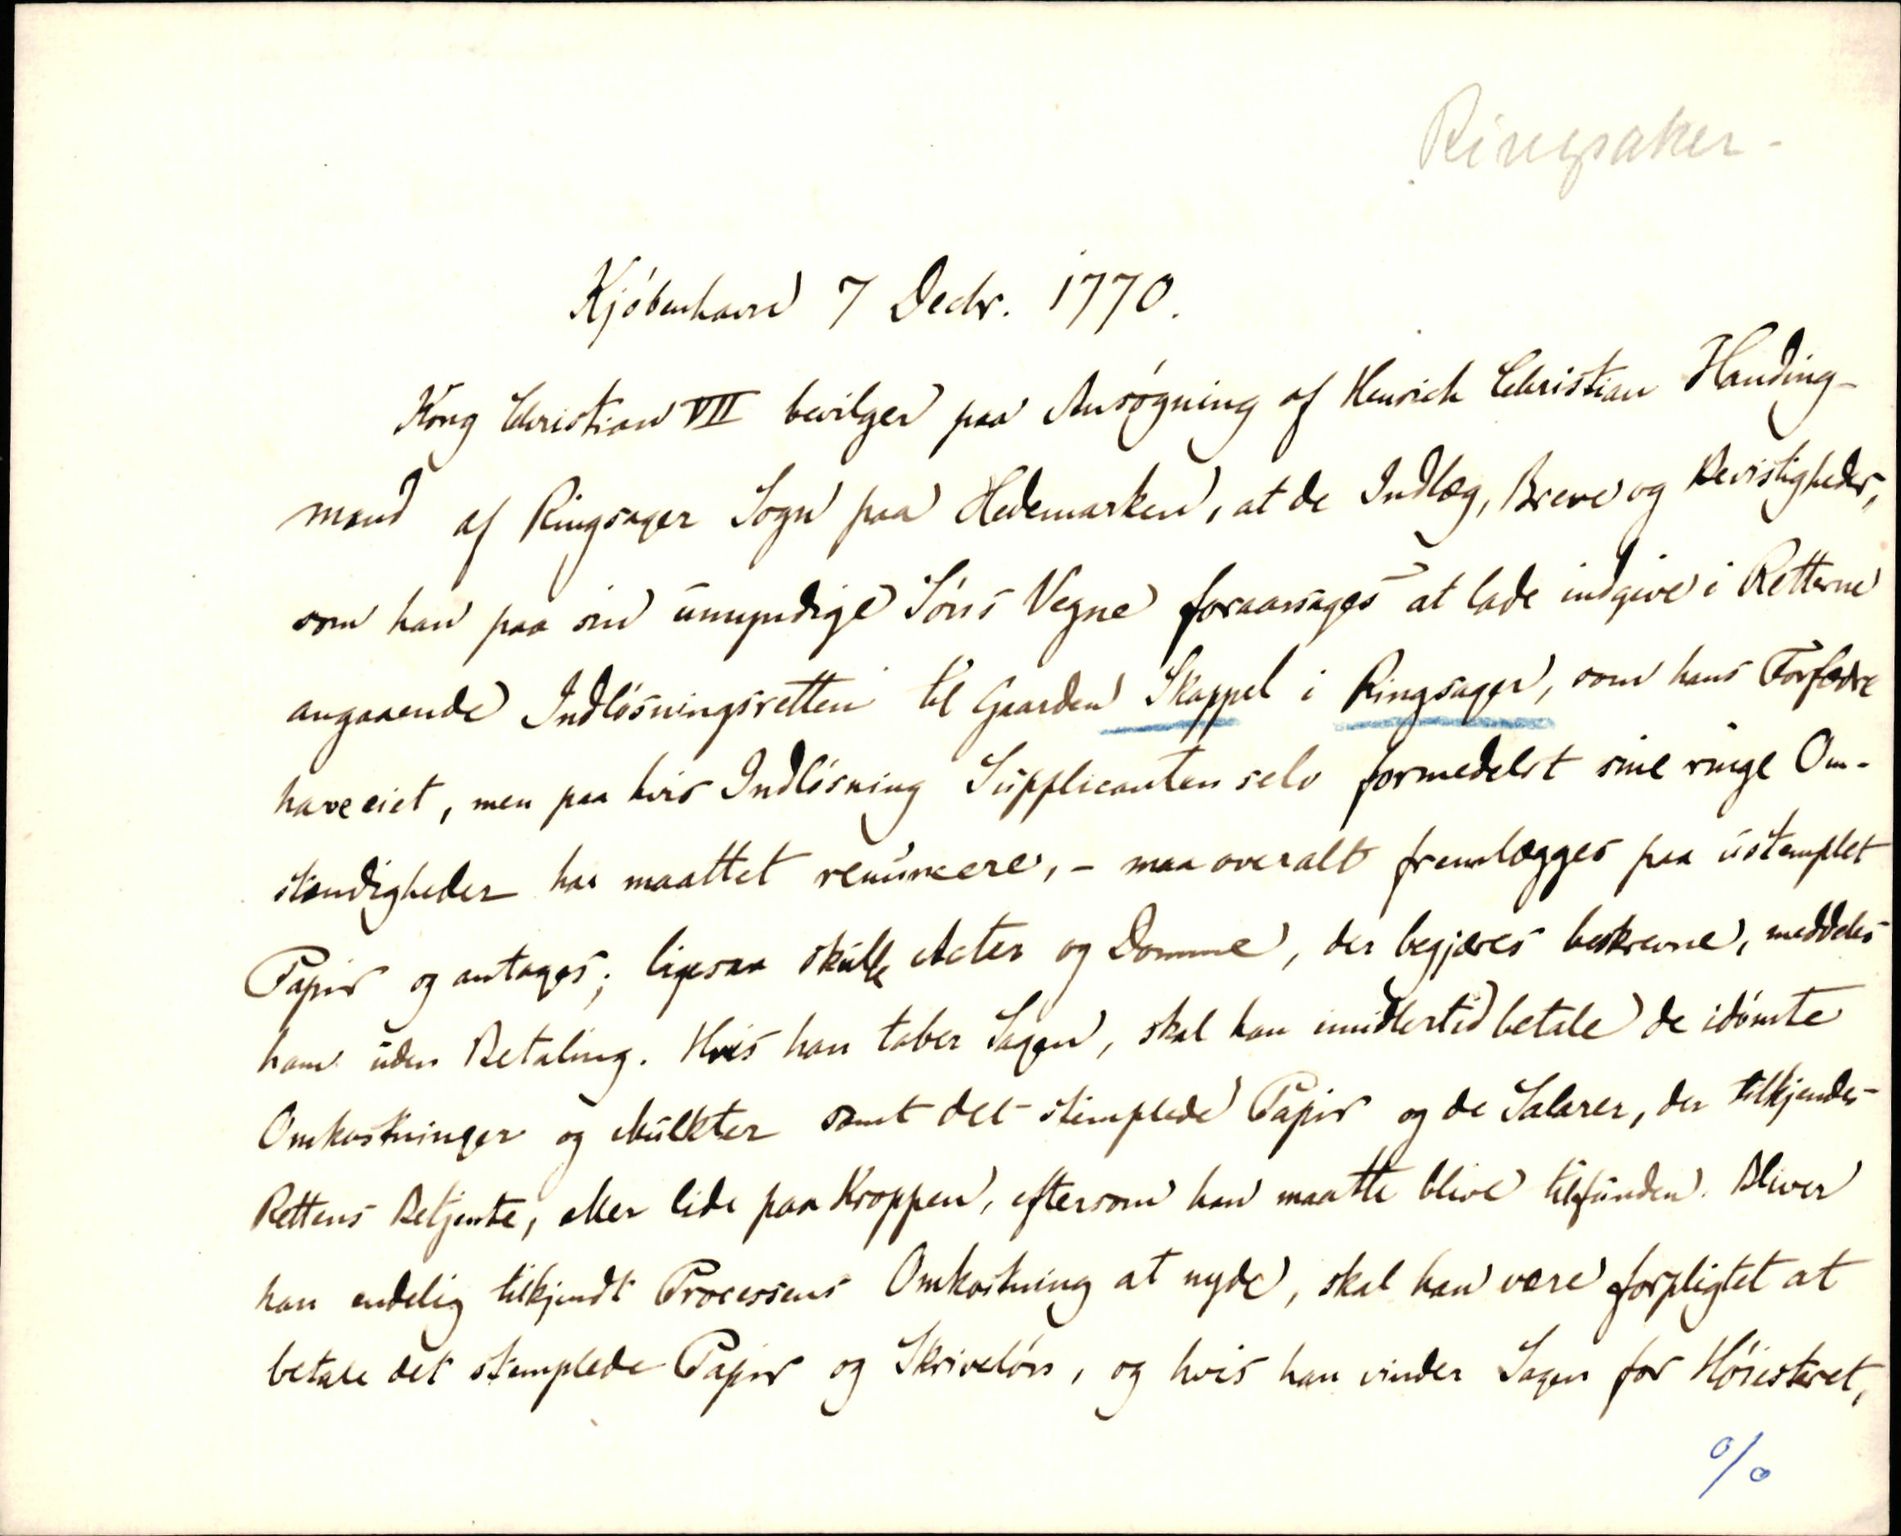 Ringsaker -
Kjöbenhavn 7 Decbr. 1770.
Kong Christian VII bevilger paa Ansøgning af Henrich Christian Handing-
mand af Ringsager Sogn paa Hedemarken, at de Indlæg, Breve og Bevisligheder,
som han paa sin umyndige Søns Vegne foraarsages at lade indgive i Retterne
angaaende Indløsningsretten til Gaarden Skappel i Ringsager, som hans Forfædre
have eiet, men paa hvis Indløsning Supplicanten selv formedelst sine ringe Om-
stændigheder har maattet renuncere, - maa overalt fremlægges paa ustemplet
Papir og antages; ligesaa skulle Acter og Domme, der begjæres beskrevne, meddeles
ham uden Betaling. Hvis han taber Sagen, skal han imidlertid betale de idømte
Omkostninger og Mulkter samt det stemplede Papir og de Salærer, der tilkjendes
Rettens Betjente, eller lide paa Kroppen, eftersom han maatte blive tilfunden. Bliver
han endelig tilkjendt Processens Omkostning at nyde, skal han være forpligtet at
betale det stemplede Papir og Skriveløn, og hvis han vinder Sagen for Høiesteret,
o/o